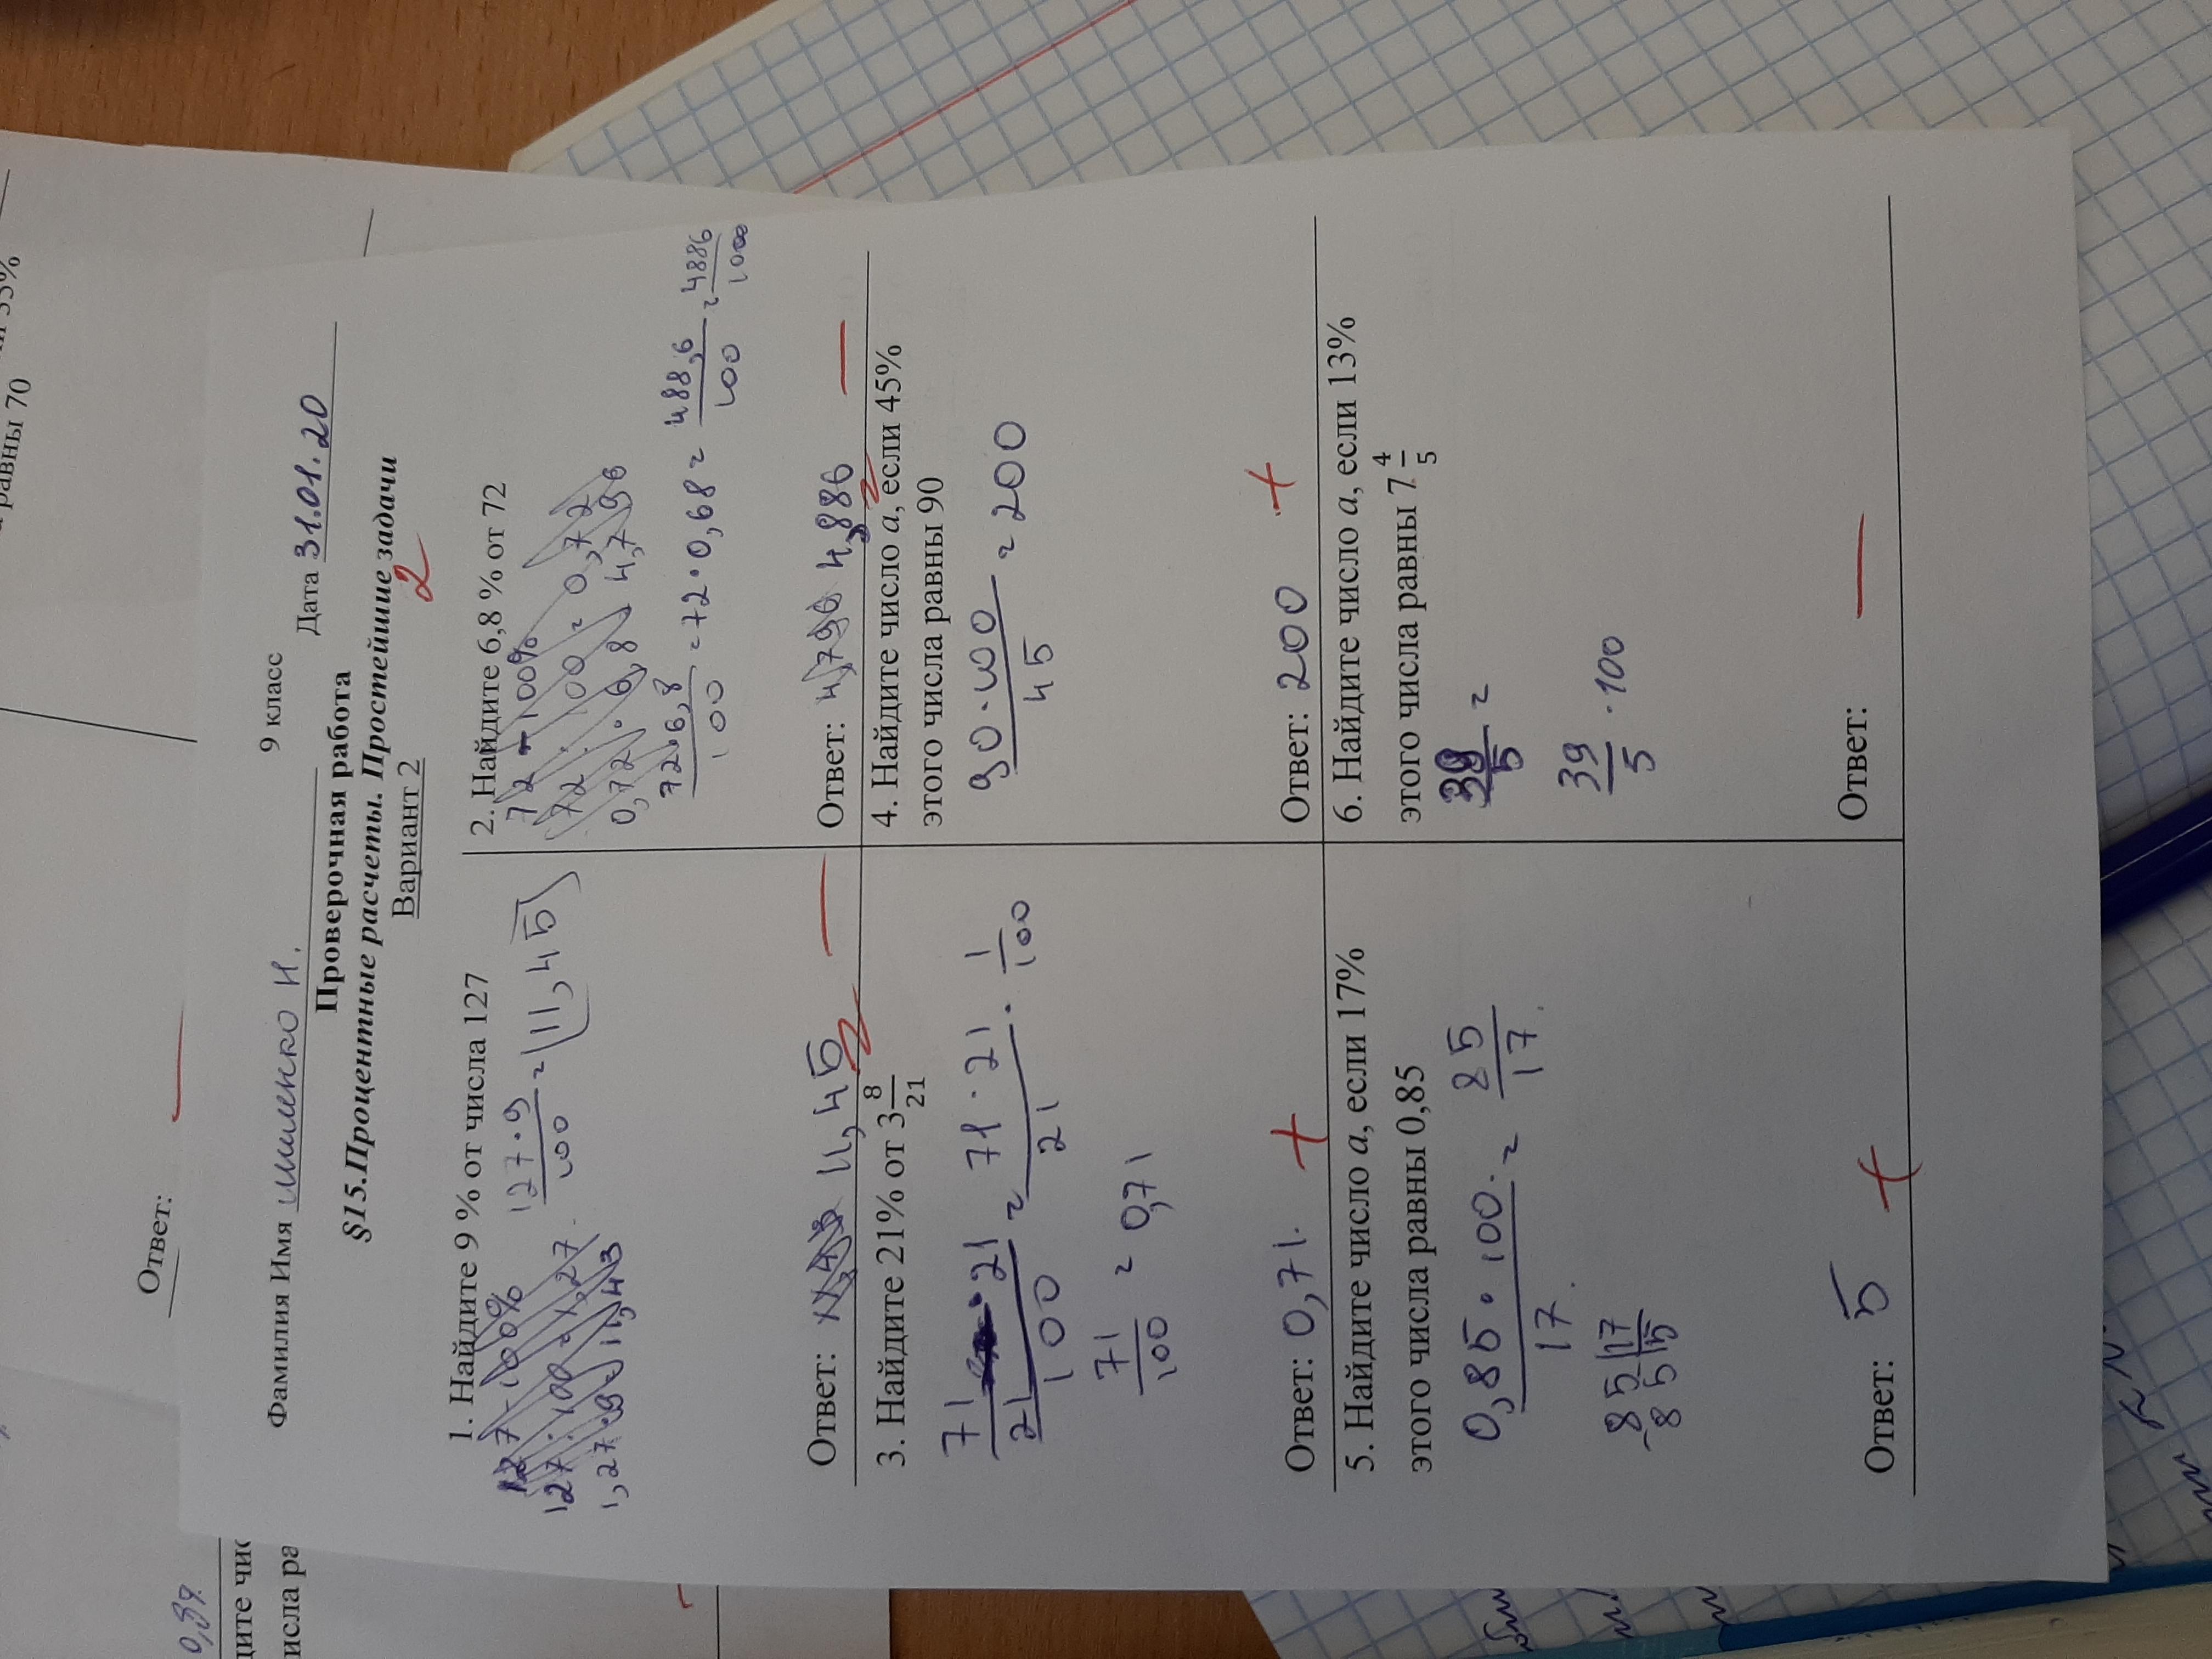 равны 70
Ответ:
0,84
Фамилия Имя Н. 9 класс
Дата 31.01.20
Проверочная работа
§15.Процентные расчеты. Простейшие задачи
Вариант 2
2
1. Найдите 9 % от числа 127
127 - 100%
127 : 100 = 1,27
1,27 · 9 = 11,43
127·9/100 = 11,45
Ответ: 11,45 —
2
2. Найдите 6,8 % от 72
72 - 100%
72 : 100 = 0,72
0,72 · 6,8 = 4,796
72·6,8/100 = 72·0,68 = 488,6/100 = 4886/1000
Ответ: 4,796 4,886 —
2
3. Найдите 21% от 3 8/21
71/21 · 21/100 = 71·21/21 · 1/100
71/100 = 0,71
Ответ: 0,71. +
4. Найдите число a, если 45%
этого числа равны 90
90·100/45 = 200
Ответ: 200 +
5. Найдите число a, если 17%
этого числа равны 0,85
0,85·100/17 = 85/17
85 17
85 5
Ответ: 5 +
6. Найдите число a, если 13%
этого числа равны 7 4/5
39/5 =
39/5 · 100
Ответ: —